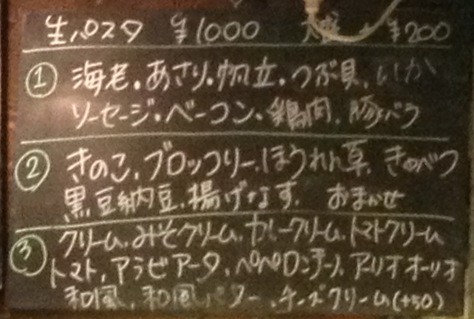 生パスタ ¥1000 大盛 + ¥200
① 海老・あさり・帆立・つぶ貝・いか
ソーセージ・ベーコン・鶏肉・豚バラ
② きのこ・ブロッコリー・ほうれん草・きゃべつ
黒豆納豆・揚げなす・おまかせ
③ クリーム・みそクリーム・カレークリーム・トマトクリーム
トマト・アラビアータ・ペペロンチーノ・アーリオオーリオ
和風・和風バター・チーズクリーム(+50)